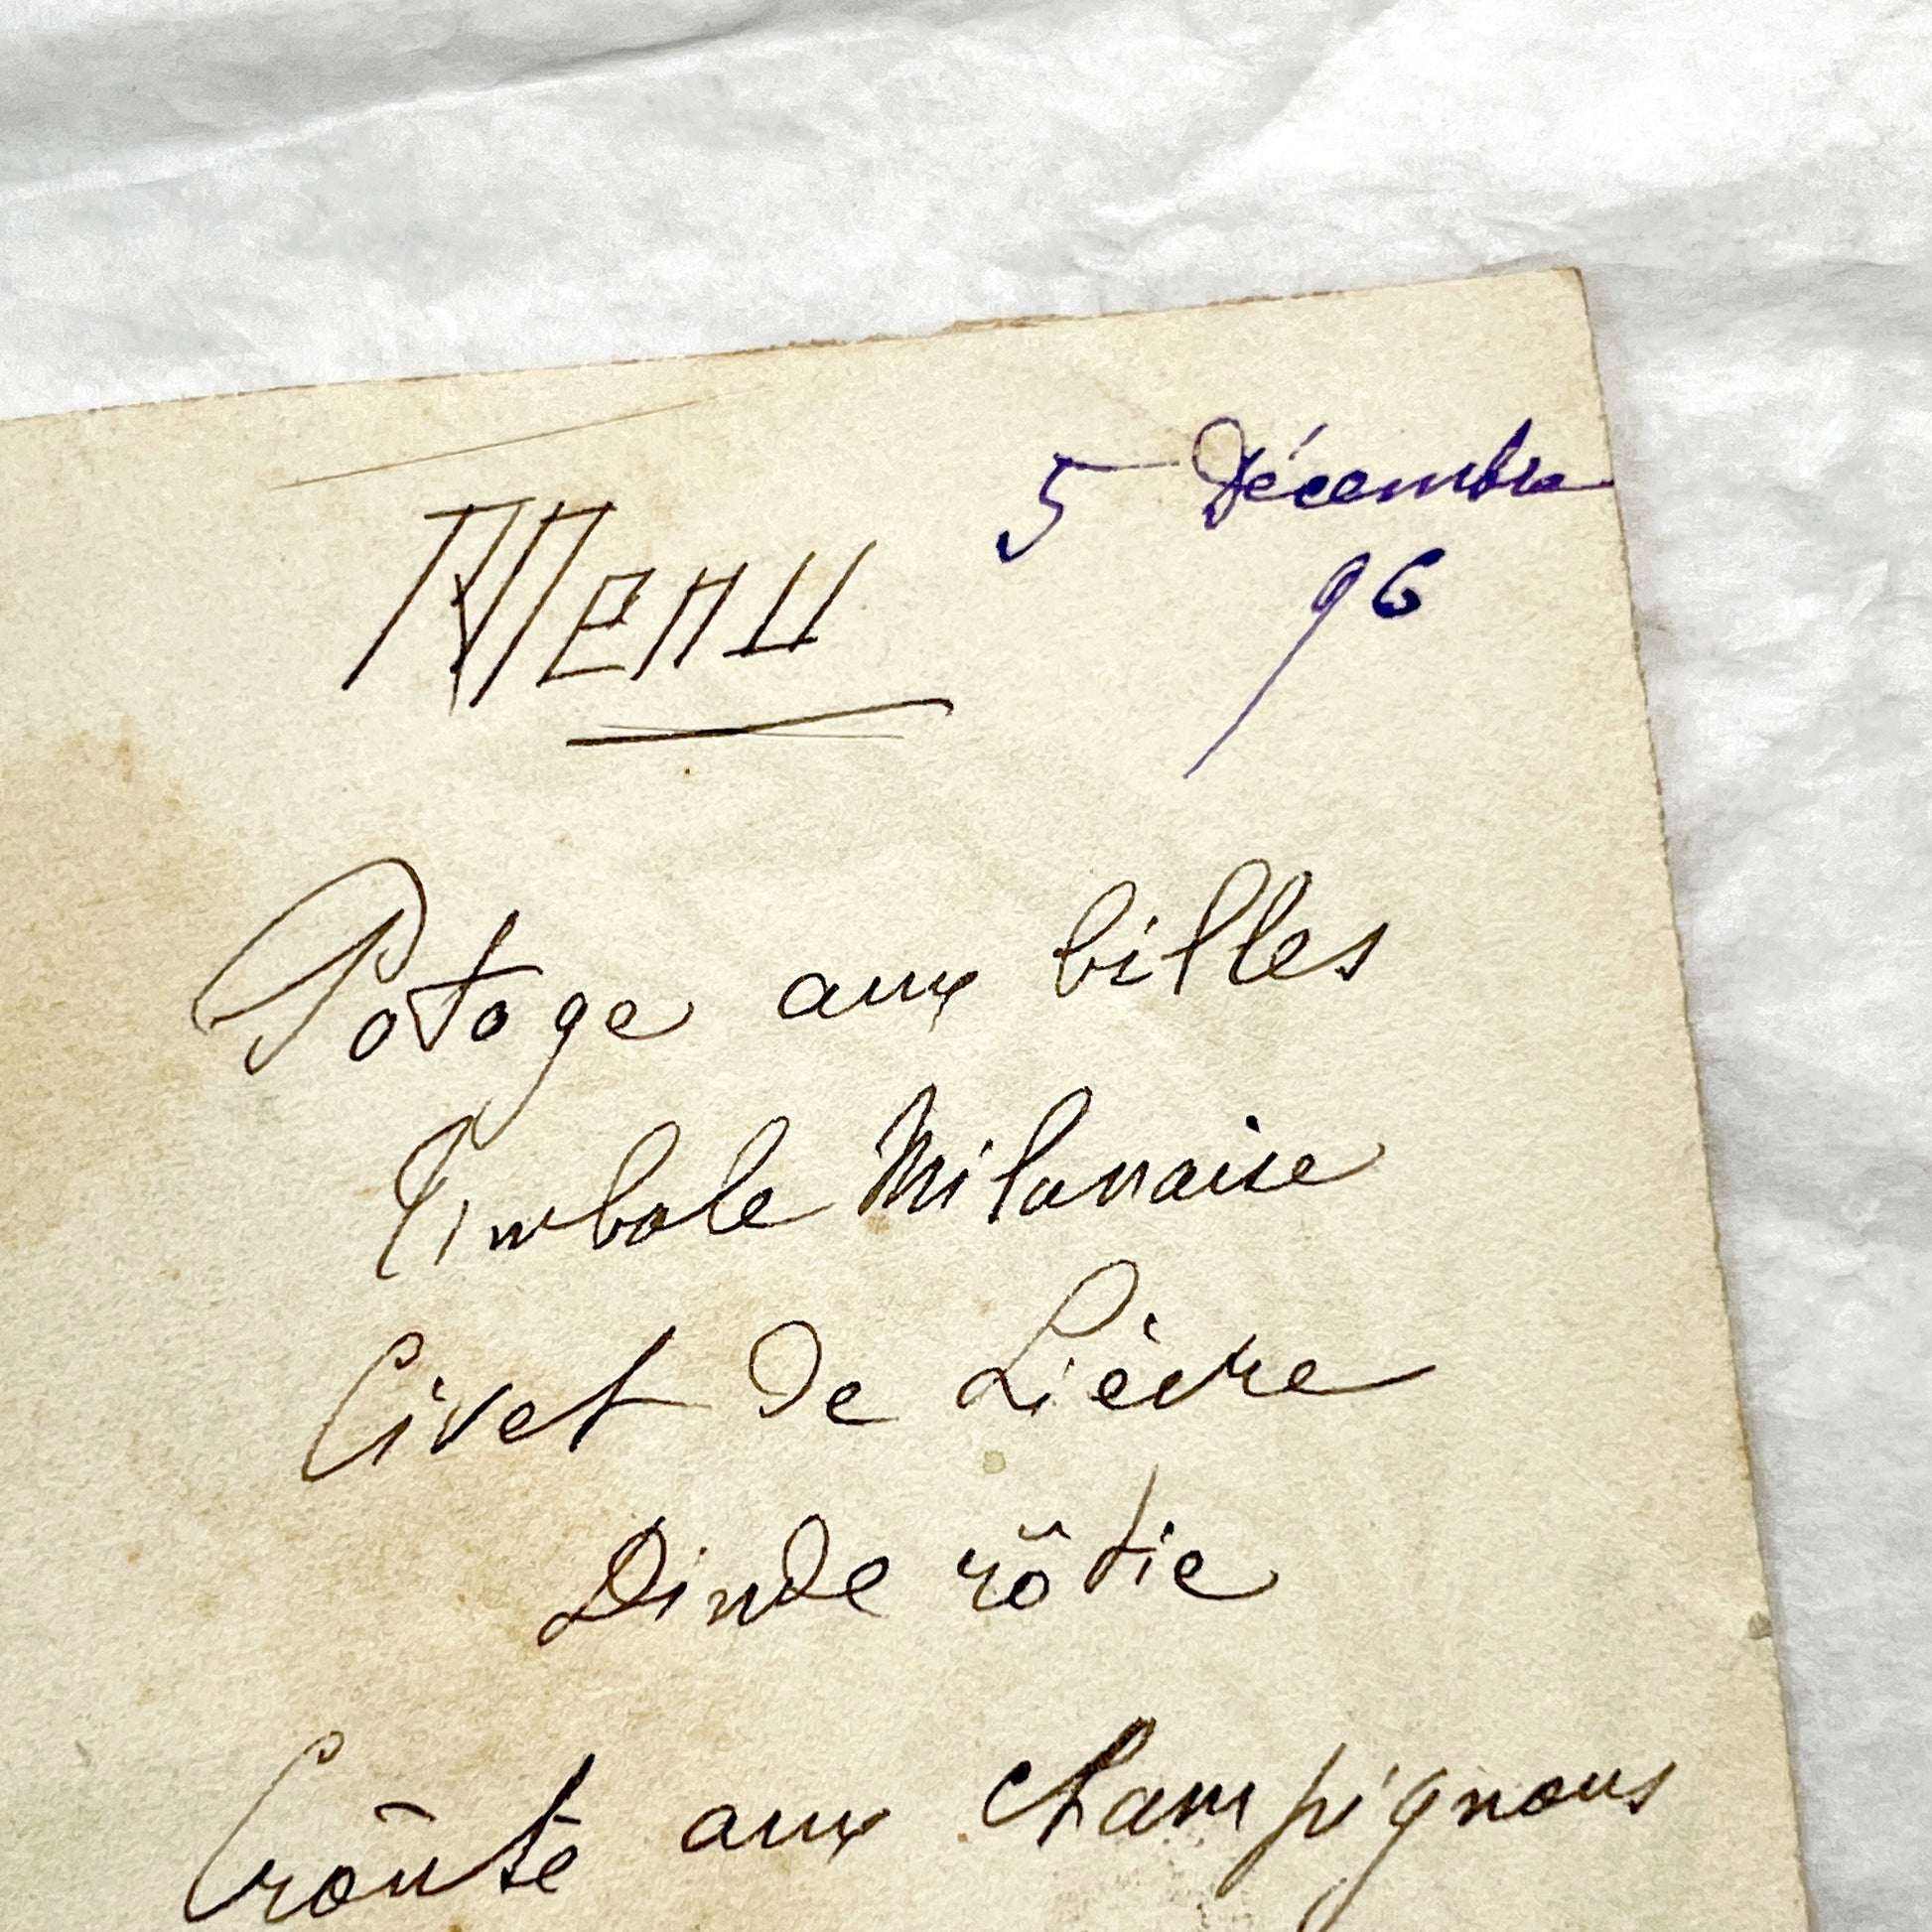 Menu
5 Décembre
96
Potage aux billes
Timbale Milanaise
Civet de Lièvre
Dinde rôtie
Croûte aux champignons